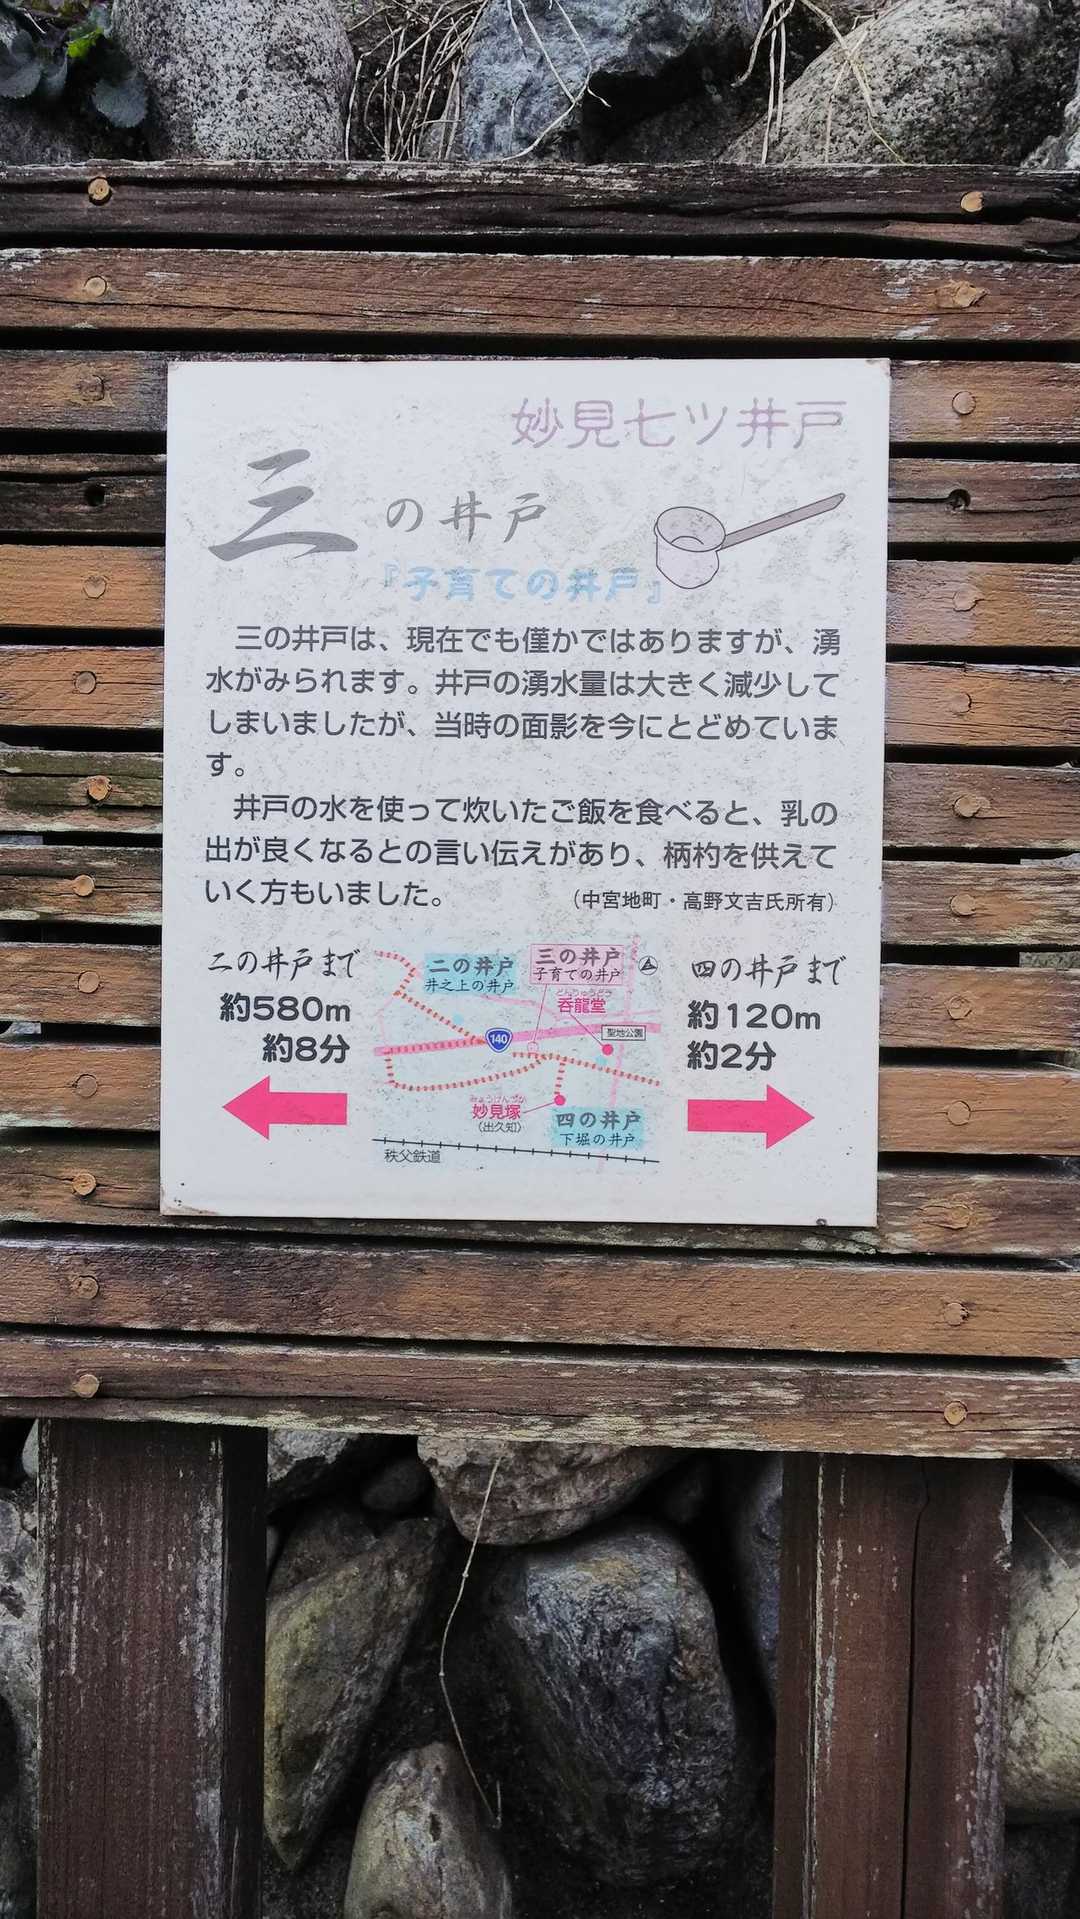 妙見七ツ井戸
三の井戸
『子育ての井戸』
三の井戸は、現在でも僅かではありますが、湧
水がみられます。井戸の湧水量は大きく減少して
しまいましたが、当時の面影を今にとどめていま
す。
井戸の水を使って炊いたご飯を食べると、乳の
出が良くなるとの言い伝えがあり、柄杓を供えて
いく方もいました。
（中宮地町・高野文吉氏所有）
二の井戸まで
約580m
約8分
二の井戸
井之上の井戸
三の井戸
子育ての井戸
どんりゅうどう
呑龍堂
140
聖地公園
みょうけんづか
妙見塚
（出久知）
四の井戸
下堀の井戸
秩父鉄道
四の井戸まで
約120m
約2分